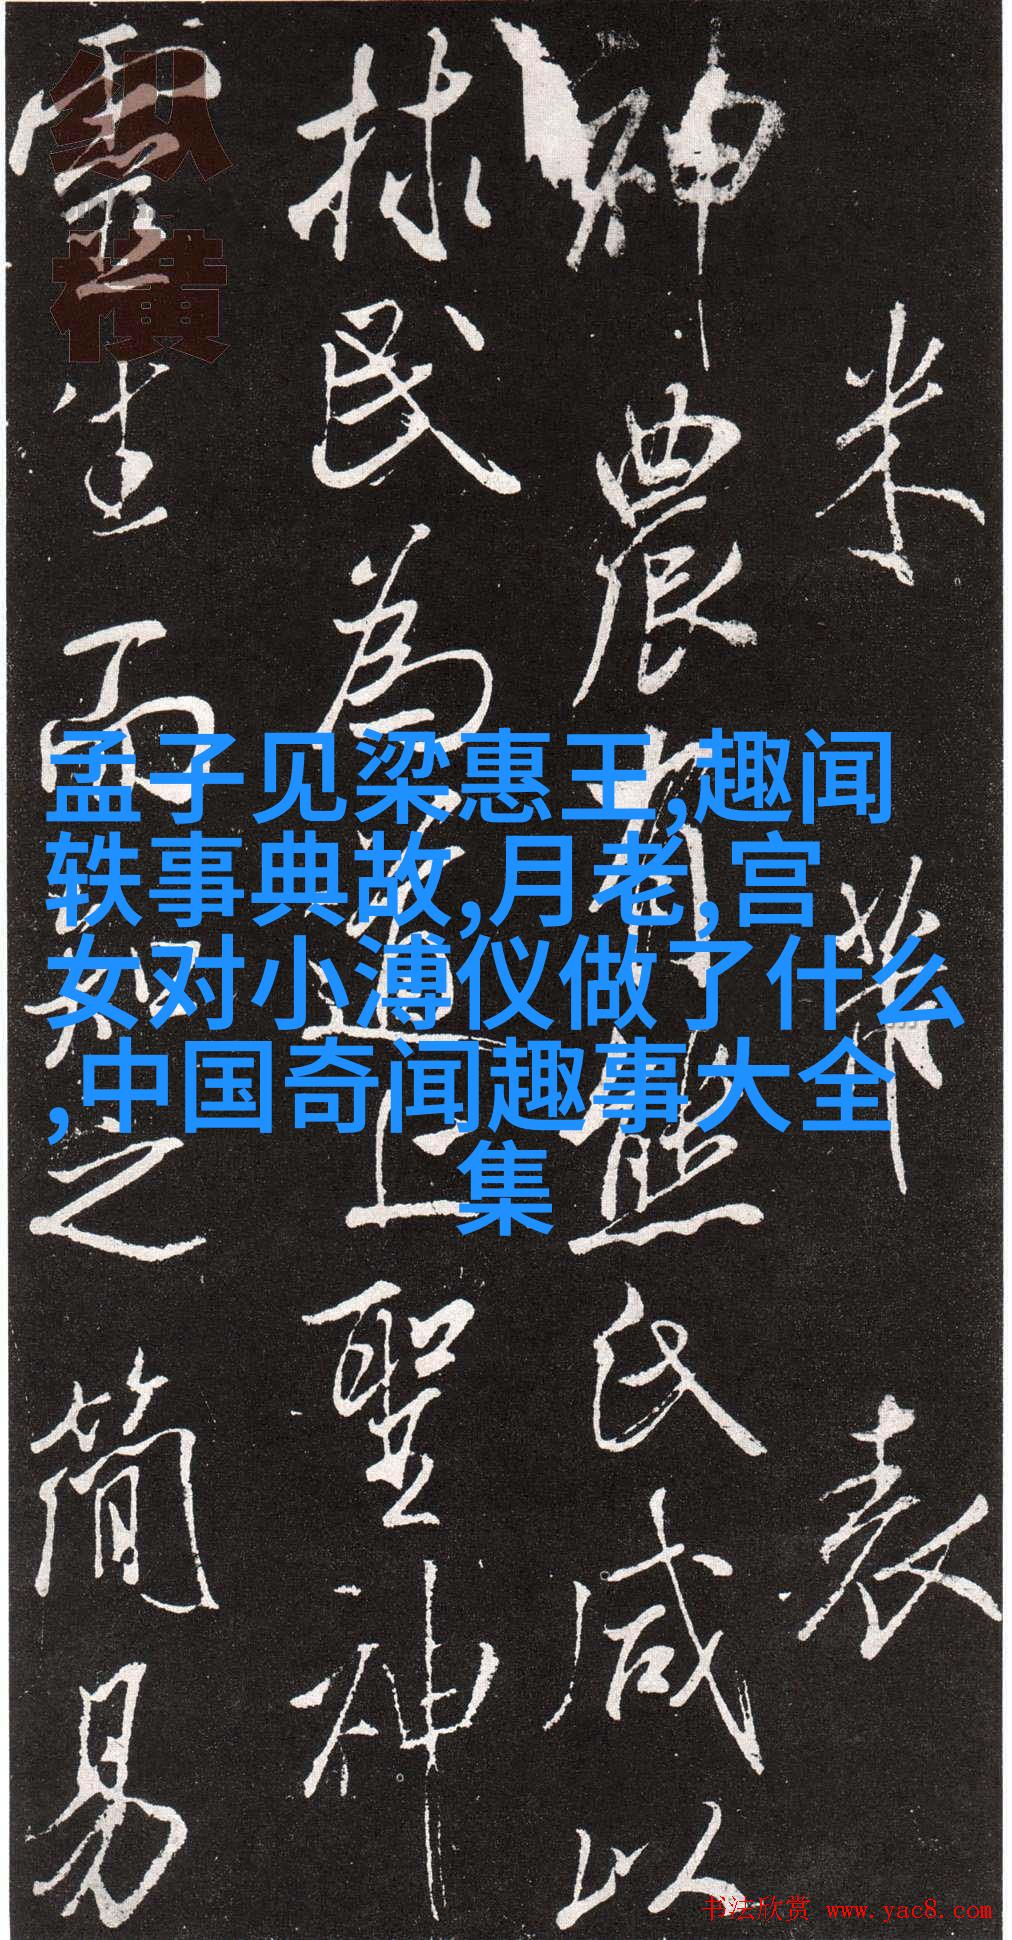 米芾表
神農有熊氏咸以
救民為
聖神
靈生而
之簡易
纵横
孟子见梁惠王,趣闻
轶事典故,月老,宫
女对小溥仪做了什么
,中国奇闻趣事大全
集
书法欣赏 www.yac8.com